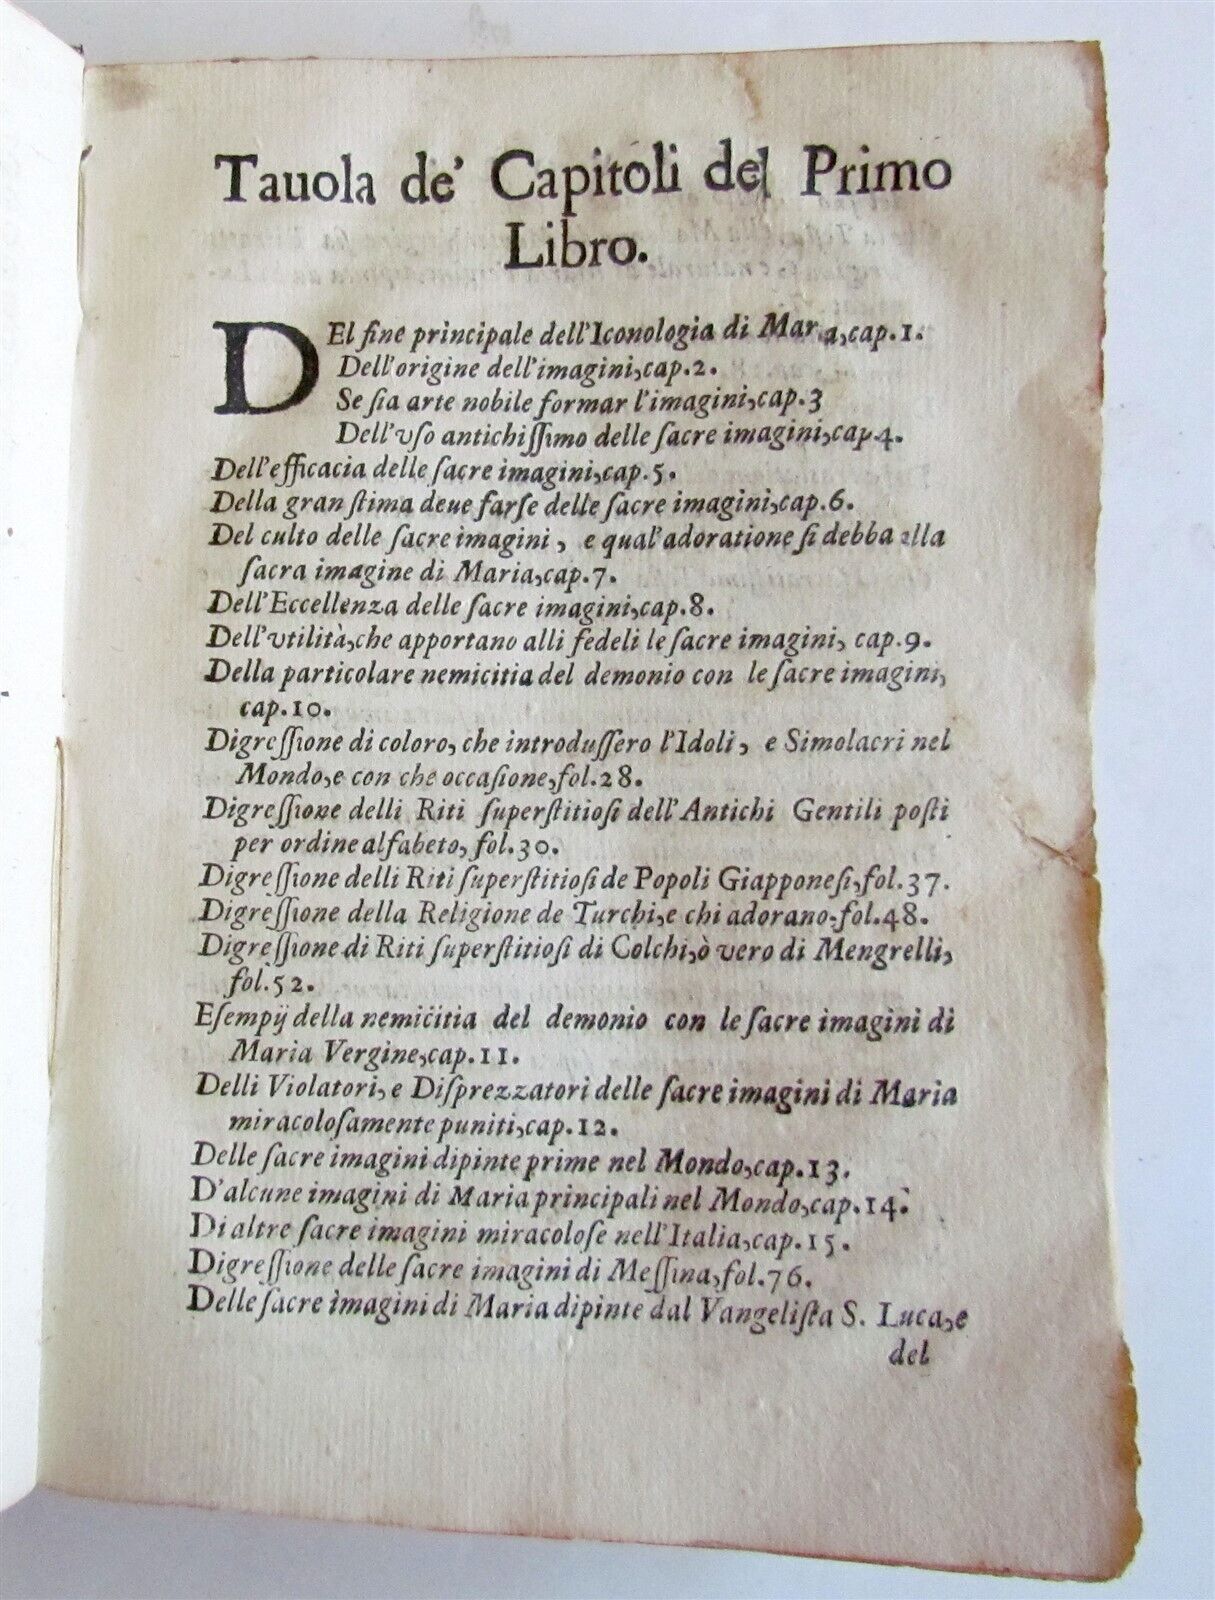 Tauola de' Capitoli del Primo
Libro.
DEl fine principale dell'Iconologia di Maria, cap. 1.
Dell'origine dell'imagini, cap. 2.
Se ſia arte nobile formar l'imagini, cap. 3
Dell'vſo antichiſſimo delle ſacre imagini, cap. 4.
Dell'efficacia delle ſacre imagini, cap. 5.
Della gran ſtima deue farſe delle ſacre imagini, cap. 6.
Del culto delle ſacre imagini, e qual'adoratione ſi debba alla
ſacra imagine di Maria, cap. 7.
Dell'Eccellenza delle ſacre imagini, cap. 8.
Dell'vtilità, che apportano alli fedeli le ſacre imagini, cap. 9.
Della particolare nemicitia del demonio con le ſacre imagini,
cap. 10.
Digreſſione di coloro, che introduſſero l'Idoli, e Simolacri nel
Mondo, e con che occaſione, fol. 28.
Digreſſione delli Riti ſuperſtitioſi dell'Antichi Gentili poſti
per ordine alfabeto, fol. 30.
Digreſſione delli Riti ſuperſtitioſi de Popoli Giapponeſi, fol. 37.
Digreſſione della Religione de Turchi, e chi adorano. fol. 48.
Digreſſione di Riti ſuperſtitioſi di Colchi, ò vero di Mengrelli,
fol. 52.
Eſempij della nemicitia del demonio con le ſacre imagini di
Maria Vergine, cap. 11.
Delli Violatori, e Diſprezzatori delle ſacre imagini di Maria
miracoloſamente puniti, cap. 12.
Delle ſacre imagini dipinte prime nel Mondo, cap. 13.
D'alcune imagini di Maria principali nel Mondo, cap. 14.
Di altre ſacre imagini miracoloſe nell'Italia, cap. 15.
Digreſſione delle ſacre imagini di Meſſina, fol. 76.
Delle ſacre imagini di Maria dipinte dal Vangeliſta S. Luca, e
del